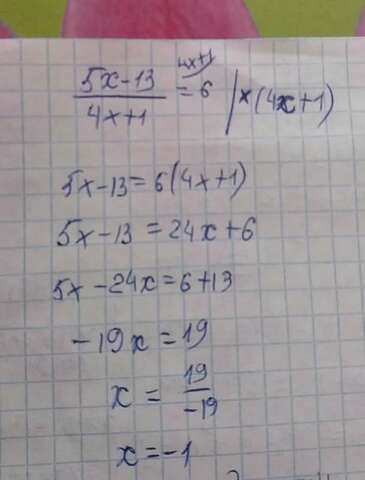 (5x-13)/(4x+1) = 6 | ×(4x+1)
4x+1
5x-13=6(4x+1)
5x-13=24x+6
5x-24x=6+13
-19x=19
x = 19/-19
x=-1